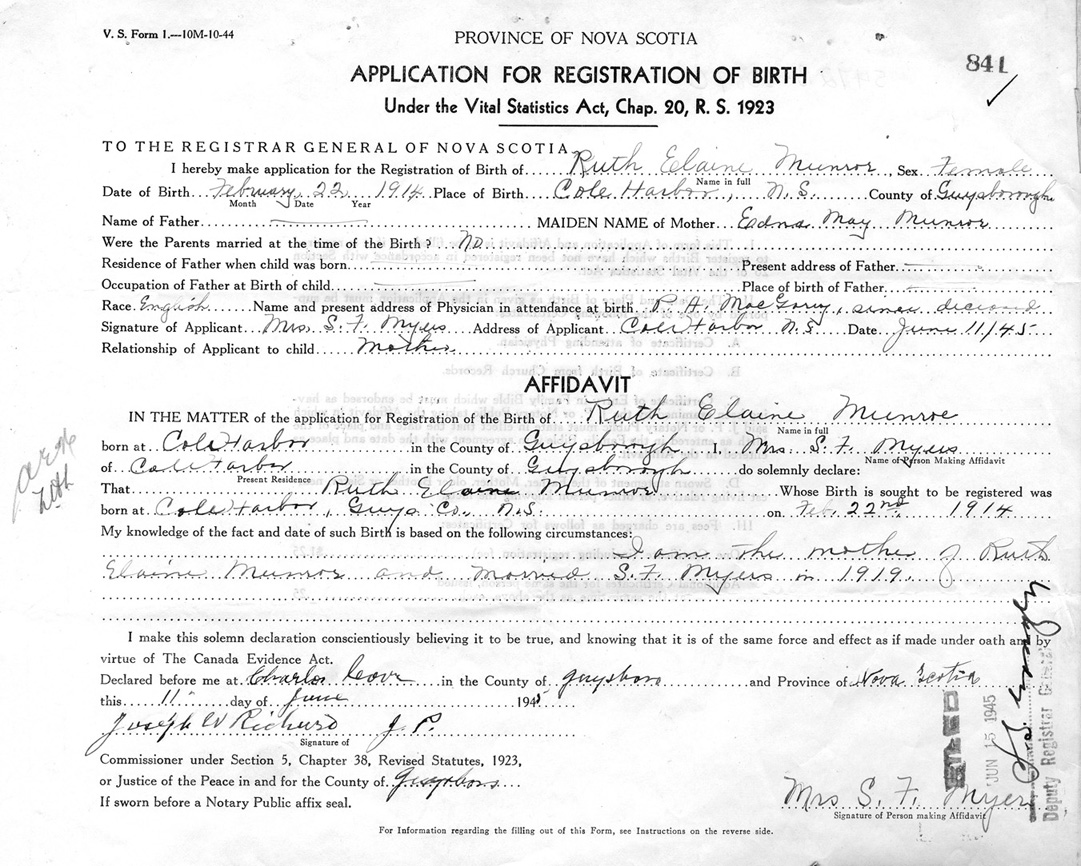 V. S. Form 1.—10M-10-44
PROVINCE OF NOVA SCOTIA
841
APPLICATION FOR REGISTRATION OF BIRTH
Under the Vital Statistics Act, Chap. 20, R. S. 1923
TO THE REGISTRAR GENERAL OF NOVA SCOTIA
I hereby make application for the Registration of Birth of Ruth Elaine Munroe, Sex Female
Name in full
Date of Birth February 22 1914 Place of Birth Cole Harbor, N. S. County of Guysborough
Month Date Year
Name of Father MAIDEN NAME of Mother Edna May Munroe
Were the Parents married at the time of the Birth? No.
Residence of Father when child was born Present address of Father
Occupation of Father at Birth of child Place of birth of Father
Race English Name and present address of Physician in attendance at birth P. A. MacGarry, since deceased
Signature of Applicant Mrs. S. F. Myers Address of Applicant Cole Harbor N. S. Date June 11/45
Relationship of Applicant to child Mother
AFFIDAVIT
IN THE MATTER of the application for Registration of the Birth of Ruth Elaine Munroe
Name in full
born at Cole Harbor in the County of Guysborough I, Mrs S. F. Myers
Name of Person Making Affidavit
of Cole Harbor in the County of Guysborough do solemnly declare:
Present Residence
That Ruth Elaine Munroe Whose Birth is sought to be registered was
born at Cole Harbor, Guys. Co., N. S. on Feb. 22nd 1914
My knowledge of the fact and date of such Birth is based on the following circumstances:
I am the mother of Ruth
Elaine Munroe and married S. F. Myers in 1919.
I make this solemn declaration conscientiously believing it to be true, and knowing that it is of the same force and effect as if made under oath and by
virtue of The Canada Evidence Act.
Declared before me at Charlos Cove in the County of Guysboro and Province of Nova Scotia
this 11 day of June 1945
Joseph W Richard J. P.
Signature of
Commissioner under Section 5, Chapter 38, Revised Statutes, 1923,
or Justice of the Peace in and for the County of Guysboro
If sworn before a Notary Public affix seal.
JUN 15 1945
Deputy Registrar General
Mrs S. F. Myers
Signature of Person making Affidavit
For Information regarding the filling out of this Form, see Instructions on the reverse side.